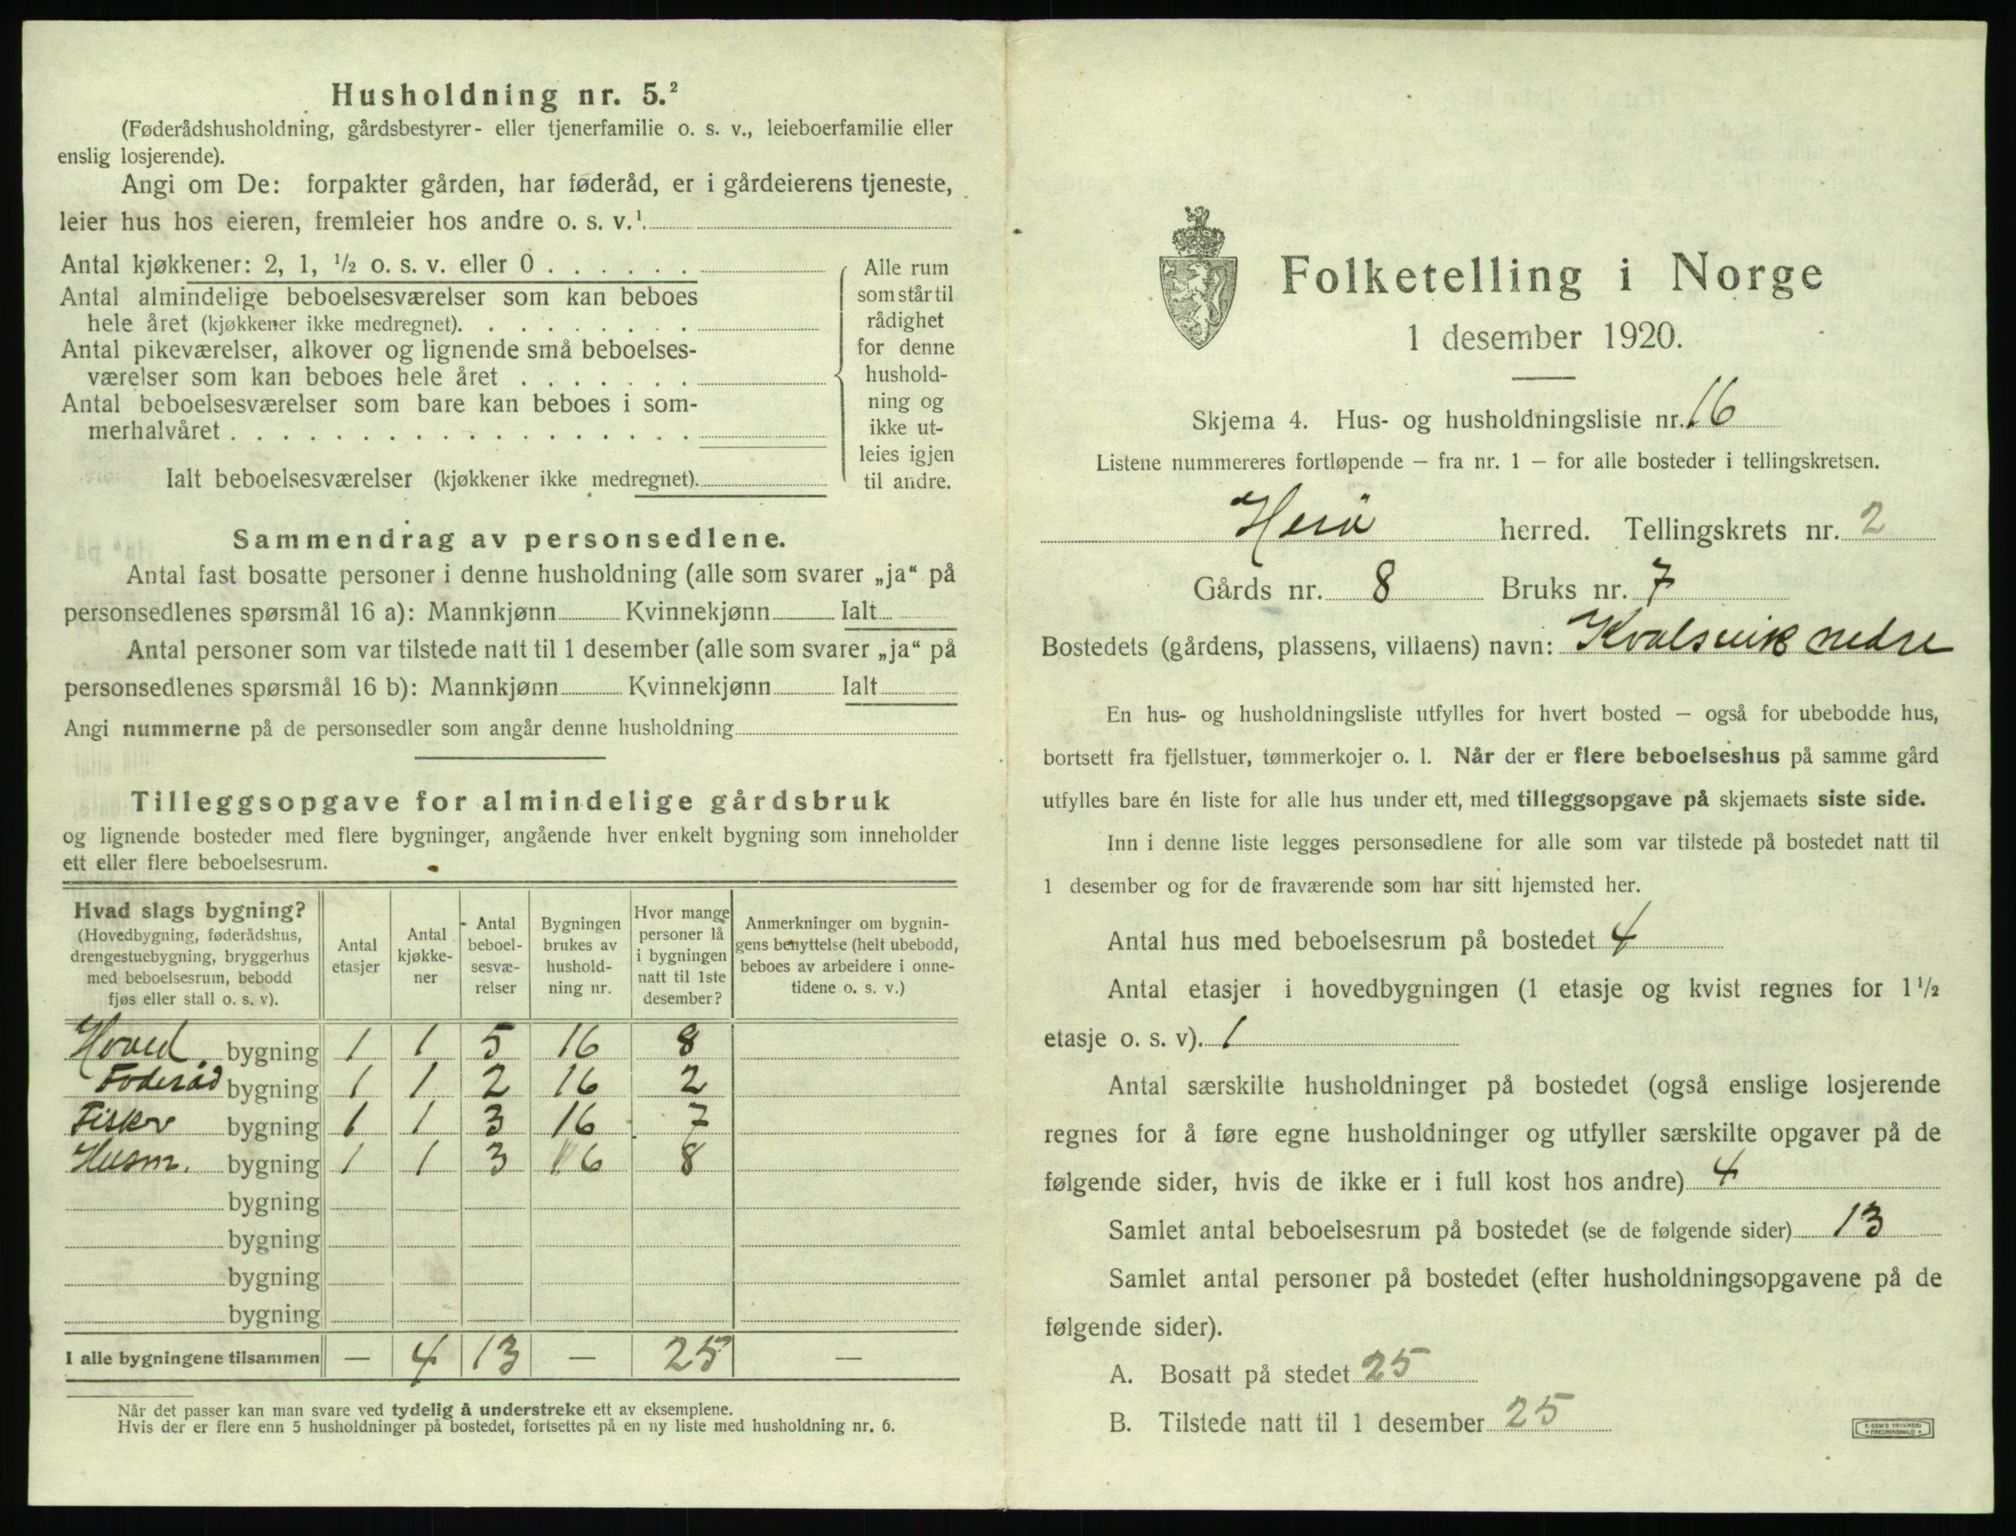 Husholdning nr. 5.²
(Føderådshusholdning, gårdsbestyrer- eller tjenerfamilie o. s. v., leieboerfamilie eller
enslig losjerende).
Angi om De: forpakter gården, har føderåd, er i gårdeierens tjeneste,
leier hus hos eieren, fremleier hos andre o. s. v.¹.
Antal kjøkkener: 2, 1, ½ o. s. v. eller 0 . . . . . .
Antal almindelige beboelsesværelser som kan beboes
hele året (kjøkkener ikke medregnet). . . . . . . . .
Antal pikeværelser, alkover og lignende små beboelses-
værelser som kan beboes hele året . . . . . . .
Antal beboelsesværelser som bare kan beboes i som-
merhalvåret . . . . . . . . . . . . . . . . . .
Ialt beboelsesværelser (kjøkkener ikke medregnet).
Alle rum
som står til
rådighet
for denne
hushold-
ning og
ikke ut-
leies igjen
til andre.
Sammendrag av personsedlene.
Antal fast bosatte personer i denne husholdning (alle som svarer „ja“ på
personsedlenes spørsmål 16 a): Mannkjønn Kvinnekjønn Ialt
Antal personer som var tilstede natt til 1 desember (alle som svarer „ja“ på
personsedlenes spørsmål 16 b): Mannkjønn Kvinnekjønn Ialt
Angi nummerne på de personsedler som angår denne husholdning
Tilleggsopgave for almindelige gårdsbruk
og lignende bosteder med flere bygninger, angående hver enkelt bygning som inneholder
ett eller flere beboelsesrum.
Hvad slags bygning?
(Hovedbygning, føderådshus,
drengestuebygning, bryggerhus
med beboelsesrum, bebodd
fjøs eller stall o. s. v).
Antal
etasjer
Antal
kjøkke-
ner
Antal
beboel-
sesvæ-
relser
Bygningen
brukes av
hushold-
ning nr.
Hvor mange
personer lå
i bygningen
natt til 1ste
desember?
Anmerkninger om bygnin-
gens benyttelse (helt ubebodd,
beboes av arbeidere i onne-
tidene o. s. v.)
Hoved. bygning 1 1 5 16 8
Foderåd bygning 1 1 2 16 2
Fisker bygning 1 1 3 16 7
Husm. bygning 1 1 3 16 8
bygning
bygning
bygning
bygning
I alle bygningene tilsammen — 4 13 — 25 —
Når det passer kan man svare ved tydelig å understreke ett av eksemplene.
Hvis der er flere enn 5 husholdninger på bostedet, fortsettes på en ny liste med husholdning nr. 6.
Folketelling i Norge
1 desember 1920.
Skjema 4. Hus- og husholdningsliste nr. 16
Listene nummereres fortløpende — fra nr. 1 — for alle bosteder i tellingskretsen.
Herö herred. Tellingskrets nr. 2
Gårds nr. 8 Bruks nr. 7
Bostedets (gårdens, plassens, villaens) navn: Kvalsvik nedre
En hus- og husholdningsliste utfylles for hvert bosted — også for ubebodde hus,
bortsett fra fjellstuer, tømmerkojer o. l. Når der er flere beboelseshus på samme gård
utfylles bare én liste for alle hus under ett, med tilleggsopgave på skjemaets siste side.
Inn i denne liste legges personsedlene for alle som var tilstede på bostedet natt til
1 desember og for de fraværende som har sitt hjemsted her.
Antal hus med beboelsesrum på bostedet 4
Antal etasjer i hovedbygningen (1 etasje og kvist regnes for 1½
etasje o. s. v). 1
Antal særskilte husholdninger på bostedet (også enslige losjerende
regnes for å føre egne husholdninger og utfyller særskilte opgaver på de
følgende sider, hvis de ikke er i full kost hos andre) 4
Samlet antal beboelsesrum på bostedet (se de følgende sider) 13
Samlet antal personer på bostedet (efter husholdningsopgavene på de
følgende sider).
A. Bosatt på stedet 25
B. Tilstede natt til 1 desember 25
E. SEM'S TRYKKERI
FREDRIKSHALD